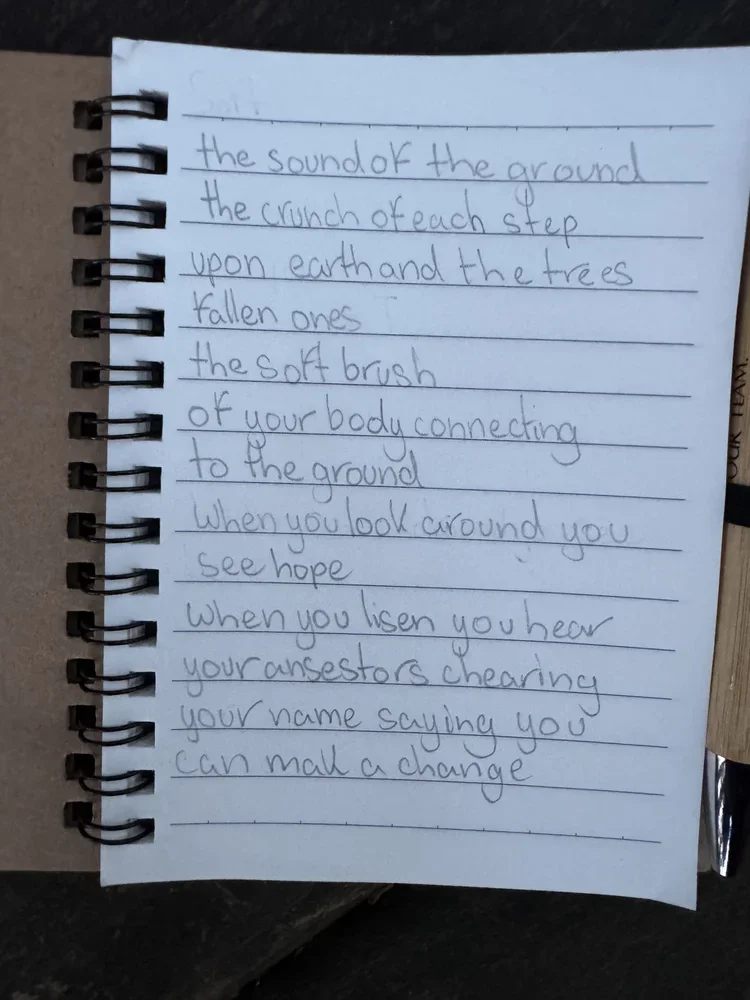 the sound of the ground
the crunch of each step
upon earth and the trees
fallen ones
the soft brush
of your body connecting
to the ground
When you look around you
see hope
when you lisen you hear
your ansestors chearing
your name saying you
can mak a change
OUR TEAM.